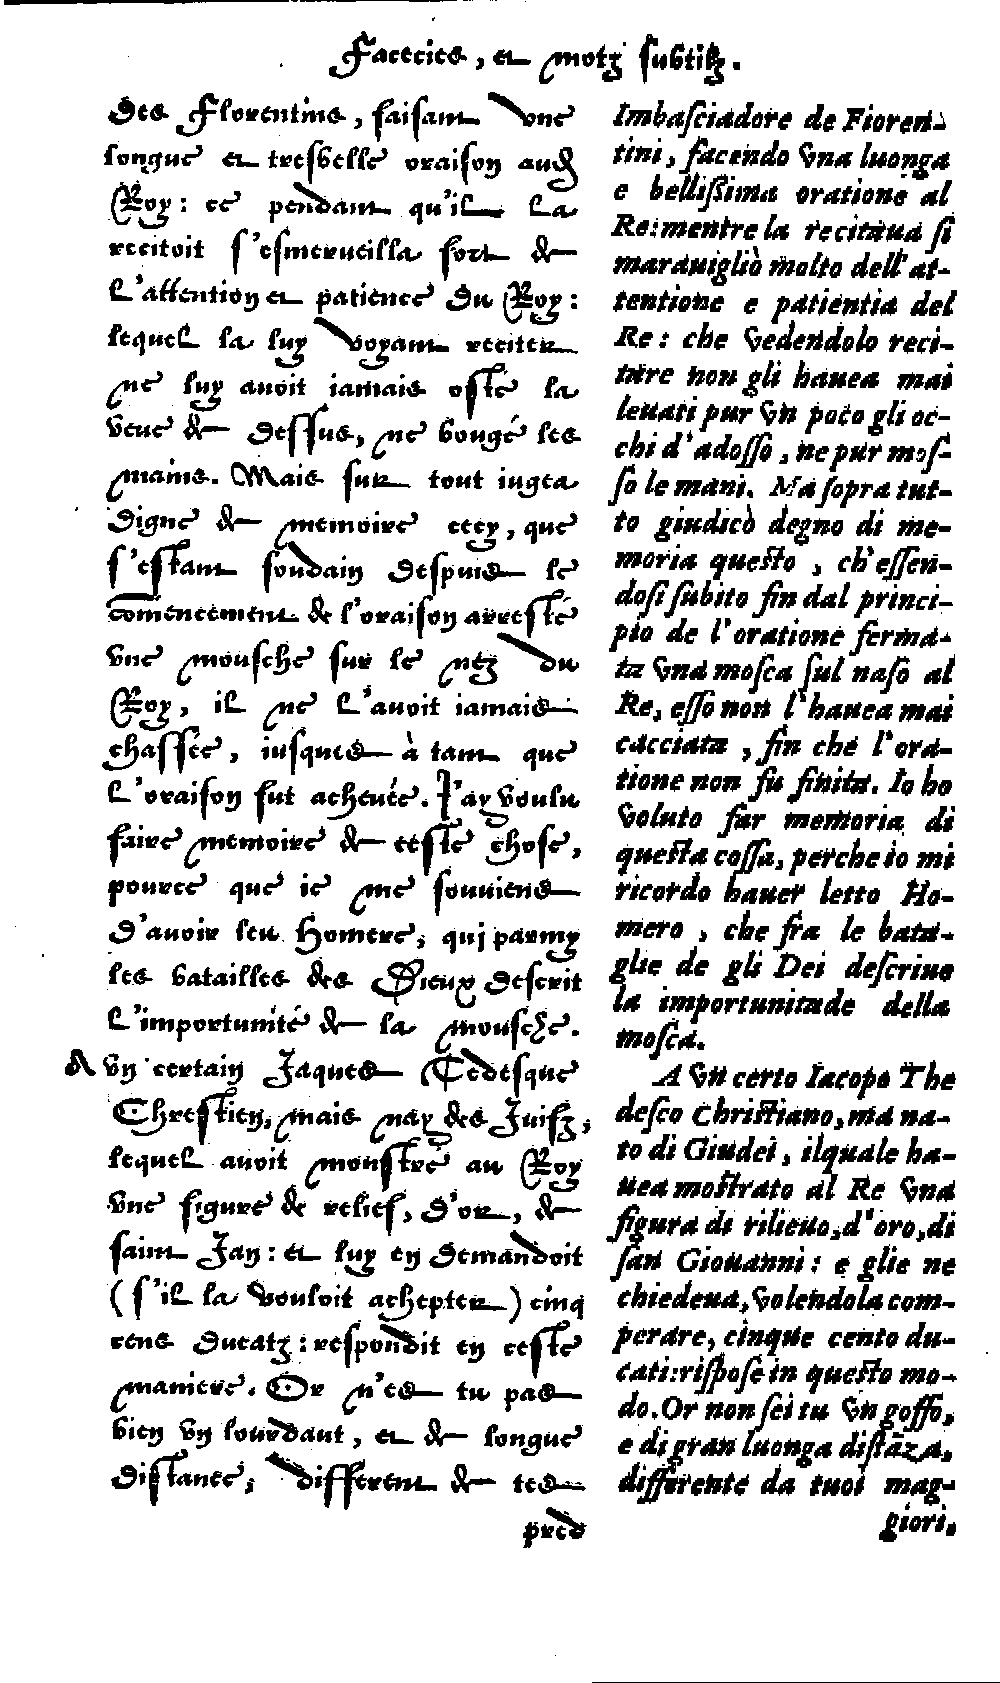 Facecies, et motz subtilz.
des Florentins, faisant vne
longue et tresbelle oraison aud
Roy: ce pendant qu'il la
recitoit s'esmerueilla fort de
l'attention et patience du Roy:
lequel la luy voyant reciter
ne luy auoit iamais osté la
veue de dessus, ne bougé les
mains. Mais sur tout iugea
digne de memoire cecy, que
s'estant soudain despuis le
cõmencement de l'oraison arresté
vne mousche sur le nez du
Roy, il ne l'auoit iamais
chassée, iusques à tant que
l'oraison fut acheuée. J'ay voulu
faire memoire de ceste chose,
pource que ie me souuiens
d'auoir leu Homere, qui parmy
les batailles des Dieux descrit
l'importunité de la mousche.
A vn certain Jaques Tedesque
Chrestien, mais nay des Juifz,
lequel auoit monstré au Roy
vne figure de relief, d'or, de
saint Jan: et luy en demandoit
(s'il la vouloit achepter) cinq
cens ducatz: respondit en ceste
maniere. Or n'es tu pas
bien vn lourdaut, et de longue
distance, different de tes
pred
Imbaſciadore de Fioren-
tini, facendo vna luonga
e belliſſima oratione al
Re: mentre la recitaua ſi
marauigliò molto dell'at-
tentione e patientia del
Re: che vedendolo reci-
tare non gli hauea mai
leuati pur vn poco gli oc-
chi d'adoſſo, ne pur moſ-
ſo le mani. Ma ſopra tut-
to giudicò degno di me-
moria queſto, ch'eſſen-
doſi ſubito fin dal princi-
pio de l'oratione ferma-
ta vna moſca ſul naſo al
Re, eſſo non l'hauea mai
cacciata, fin che l'ora-
tione non fu finita. Io ho
voluto far memoria di
queſta coſſa, perche io mi
ricordo hauer letto Ho-
mero, che fra le bata-
glie de gli Dei deſcriue
la importunitade della
moſca.
A vn certo Iacopo The
deſco Chriſtiano, ma na-
to di Giudei, ilquale ha-
uea moſtrato al Re vna
figura di rilieuo, d'oro, di
ſan Giouanni: e glie ne
chiedeua, volendola com-
perare, cinque cento du-
cati: riſpoſe in queſto mo-
do. Or non ſei tu vn goffo,
e di gran luonga diſtãza,
differente da tuoi mag-
giori,